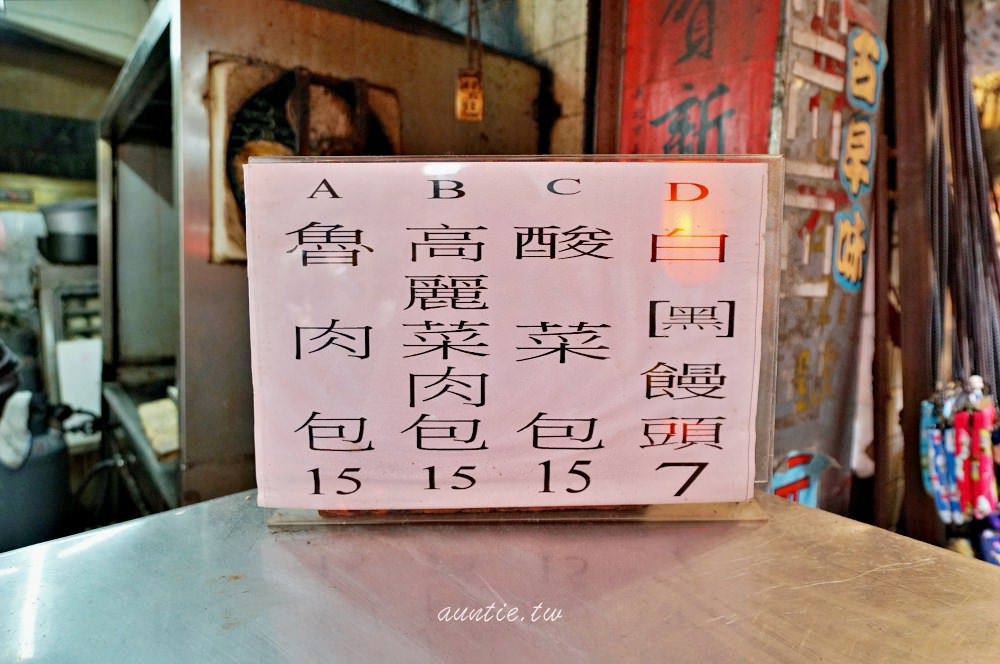 A
魯肉包
15
B
高麗菜肉包
15
C
酸菜包
15
D
白[黑]饅頭
7
賀新
古早味
auntie.tw